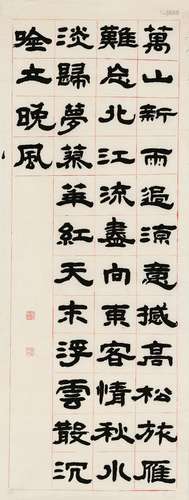 萬山新雨過涼意撼高松旅雁
難忘北江流盡向東客情秋水
淡歸夢蓼華紅天末浮雲散沉
唫立晚風